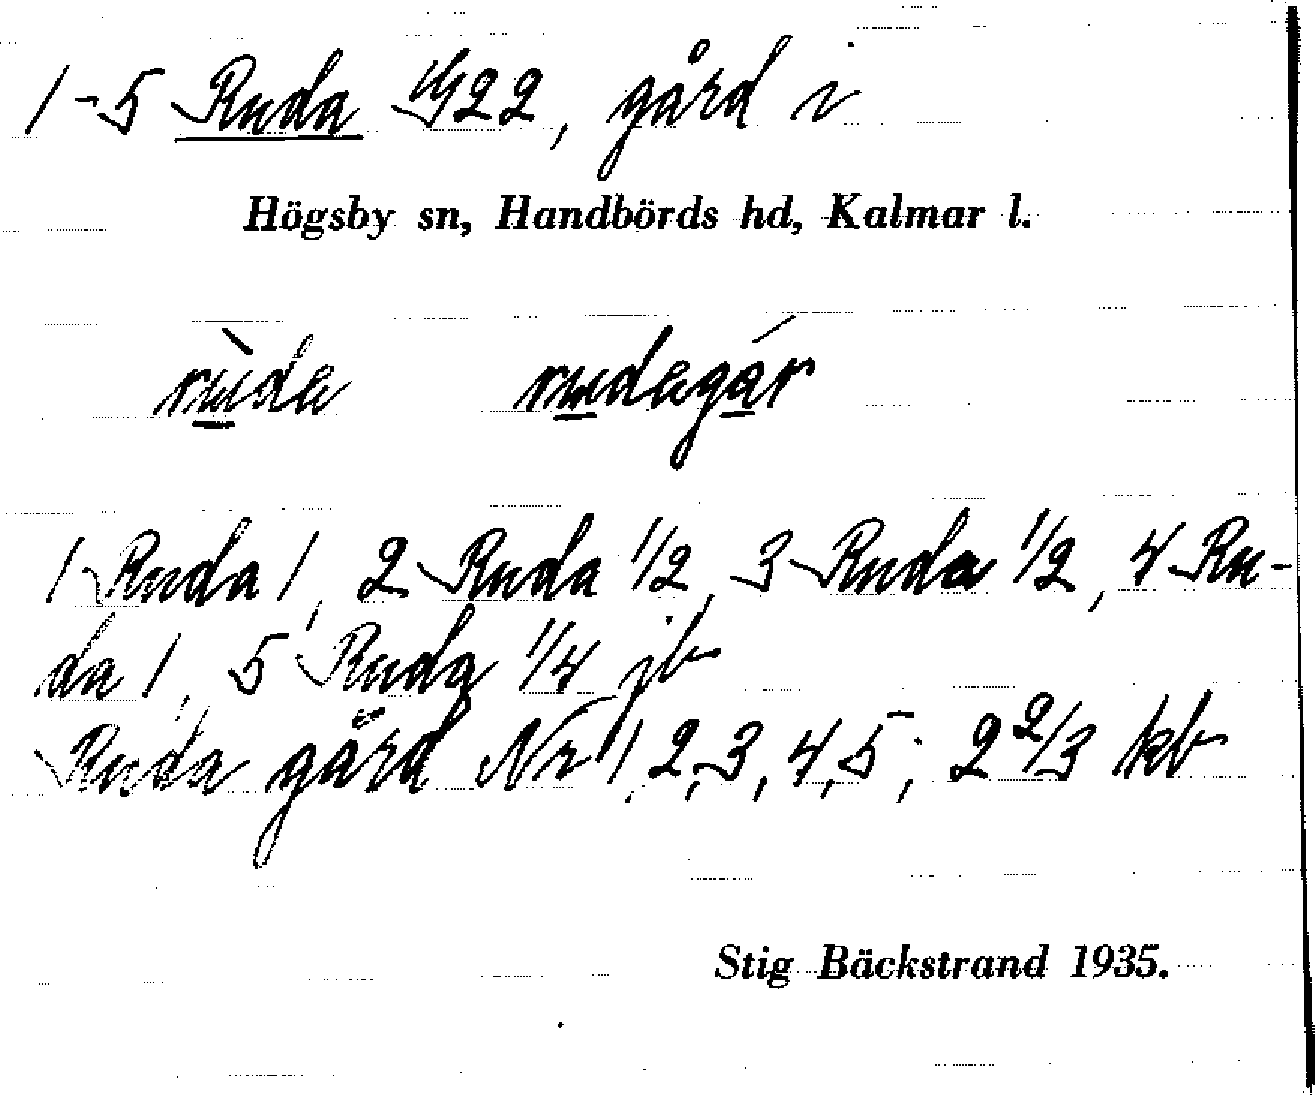 1-5 Ruda 22, gård i
Högsby sn, Handbörds hd, Kalmar l.
rùda rudagár
1 Ruda 1, 2 Ruda 1/2, 3 Ruda 1/2, 4 Ru-
da 1, 5 Ruda 1/4 jb
Ruda gård Nr 1, 2, 3, 4, 5; 2 2/3 kb
Stig Bäckstrand 1935.